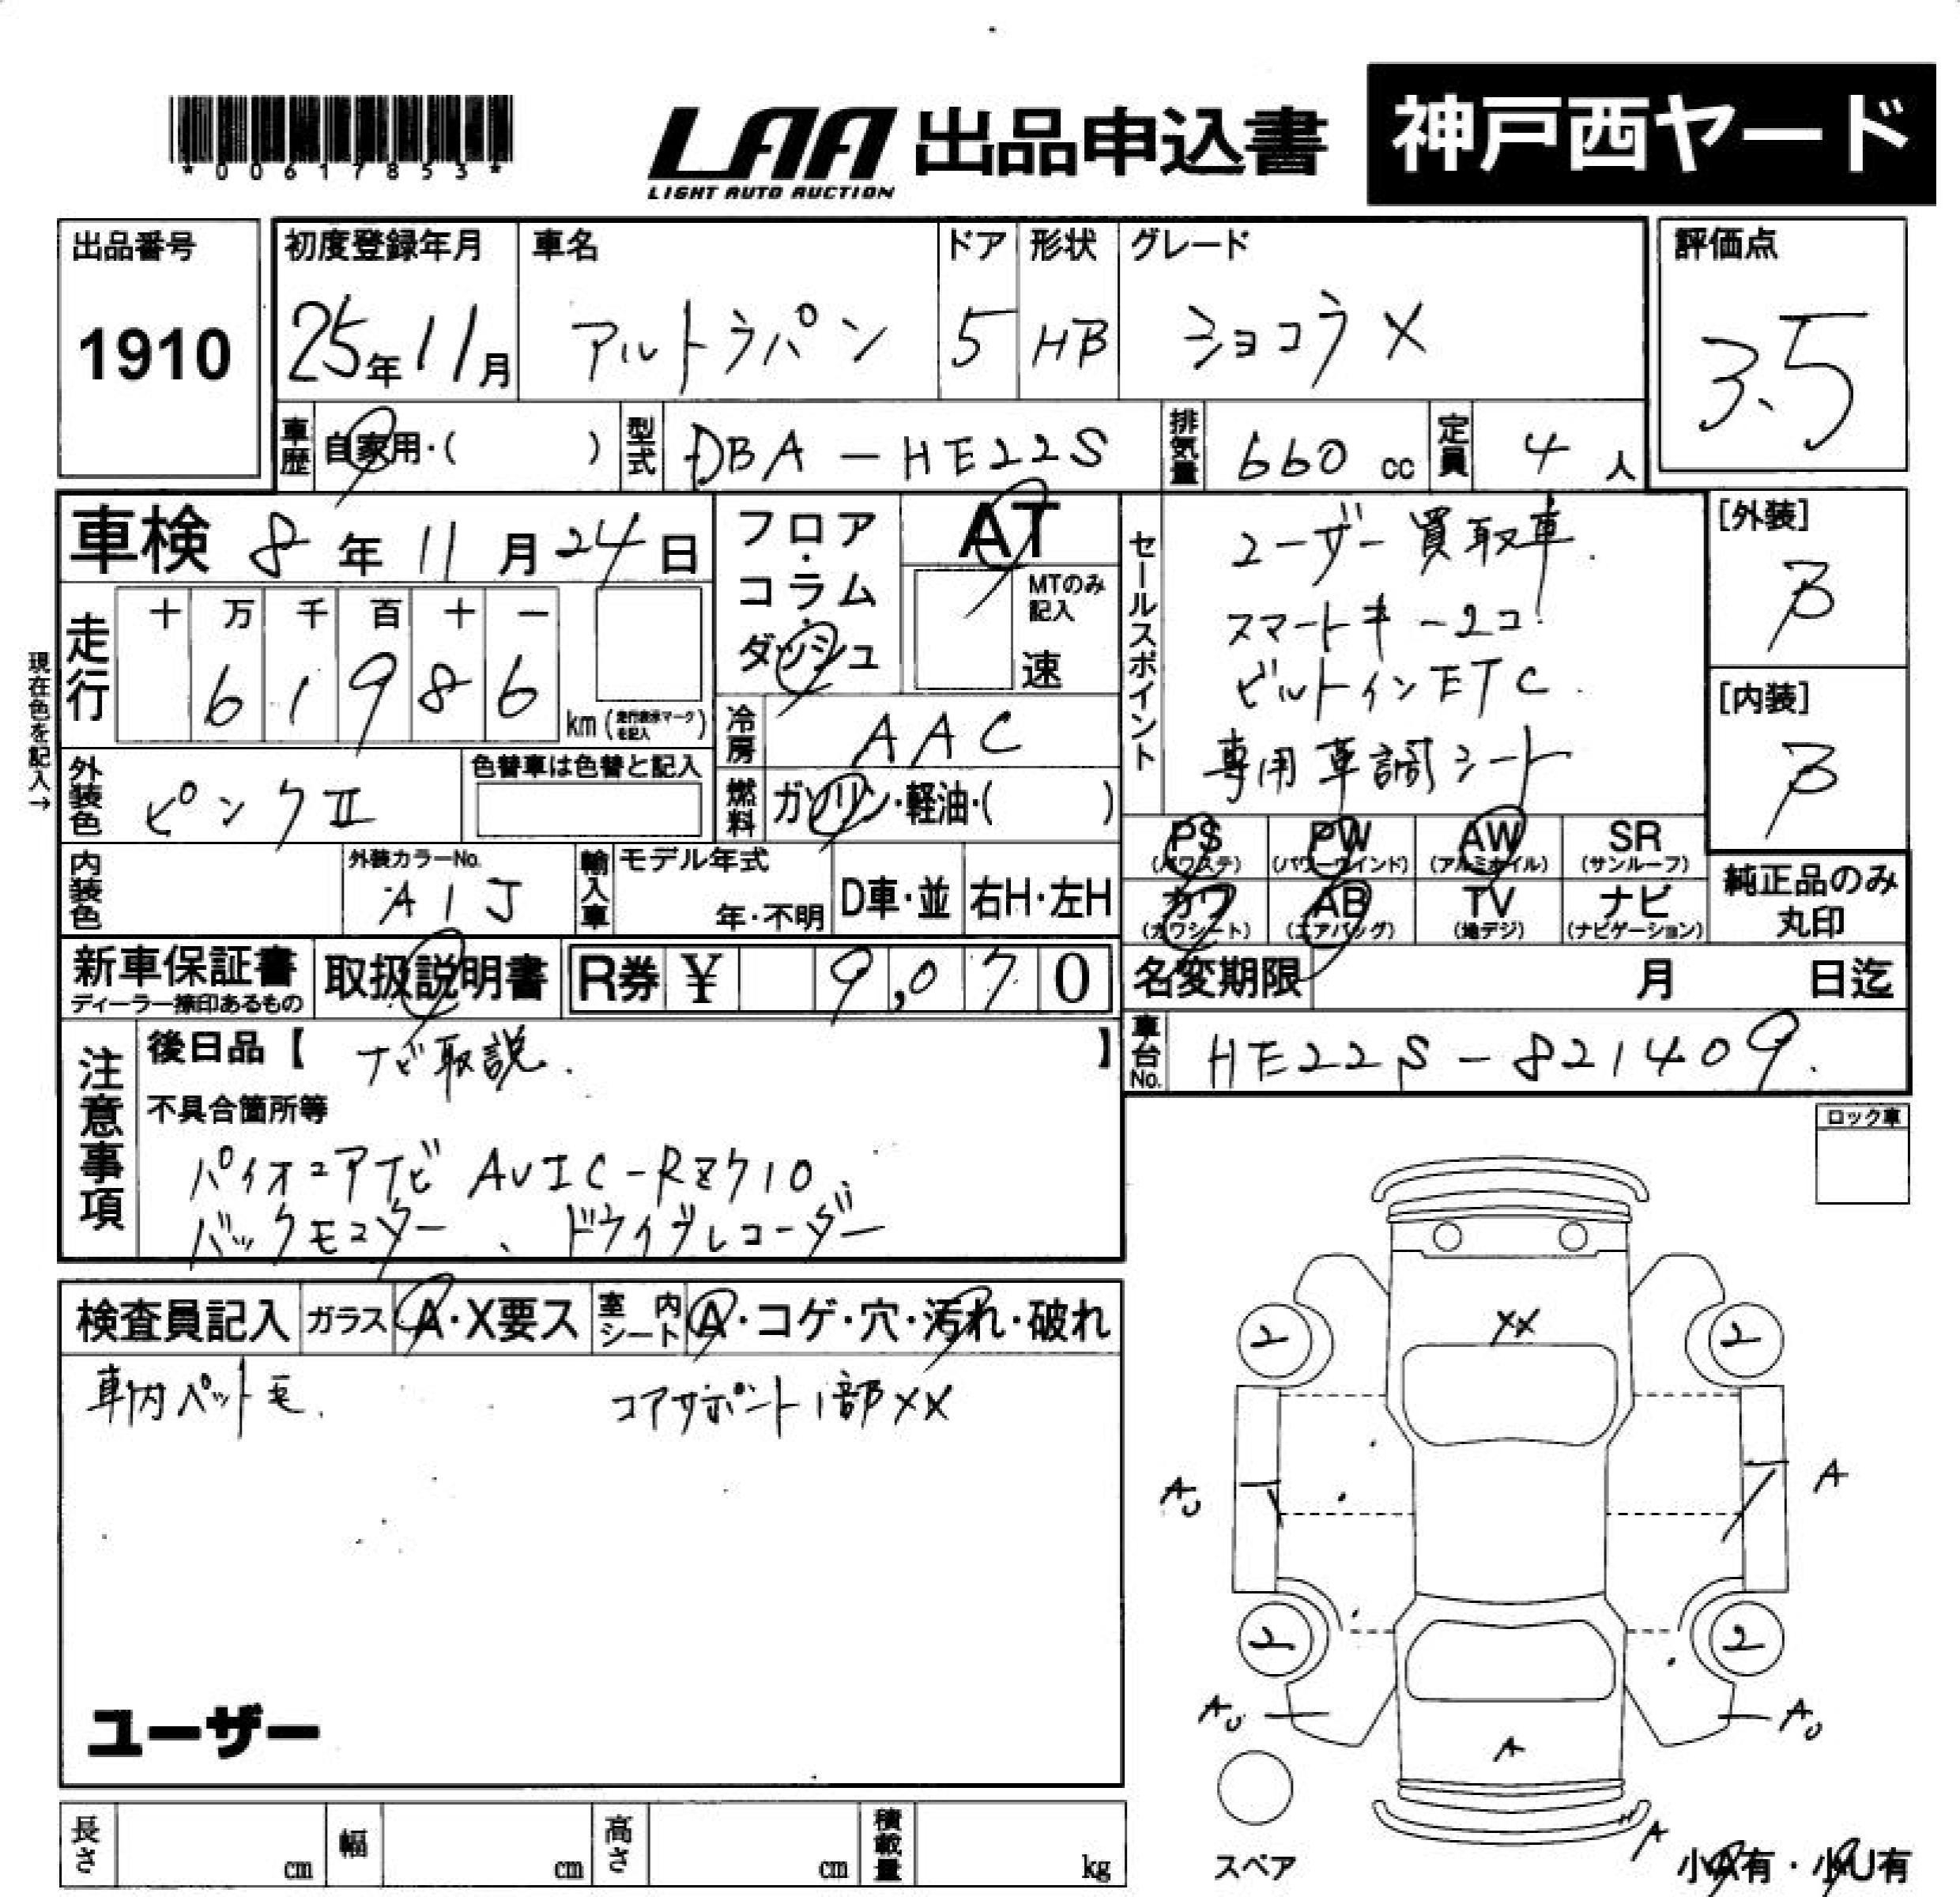 *00617853*
LAA 出品申込書 神戸西ヤード
LIGHT AUTO AUCTION
出品番号 1910
初度登録年月 25年11月
車名 アルトラパン
ドア 5
形状 HB
グレード ショコラX
評価点 3.5
車歴 自家用・( )
型式 DBA-HE22S
排気量 660 cc
定員 4人
車検 8年11月24日
フロア・コラム・ダッシュ
AT
MTのみ記入
速
現在色を記入→
走行 十万千百十一
61986
km(走行表示マークを記入)
冷房 AAC
外装色 ピンクⅡ
色替車は色替と記入
燃料 ガソリン・軽油・( )
内装色
外装カラーNo. A1J
輸入車 モデル年式
年・不明
D車・並
右H・左H
セールスポイント
ユーザー買取車.
スマートキー2コ
ビルトインETC.
専用革調シート
[外装] B
[内装] B
PS(パワステ) PW(パワーウインド) AW(アルミホイル) SR(サンルーフ)
カワ(カワシート) AB(エアバッグ) TV(地デジ) ナビ(ナビゲーション)
純正品のみ丸印
新車保証書
ディーラー捺印あるもの
取扱説明書
R券 ¥ 9,070
名変期限 月 日迄
車台No. HE22S-821409.
注意事項
後日品【ナビ取説.】
不具合箇所等
パイオニアナビ AVIC-RZ710
バックモニター、ドライブレコーダー
ロック車
検査員記入 ガラス A・X要ス 室内シート A・コゲ・穴・汚れ・破れ
車内ペット毛. コアサポート1部XX
ユーザー
XX
2 2
AU A
2 2
AU AU
A
A
スペア
小A有・小U有
長さ cm 幅 cm 高さ cm 積載量 kg